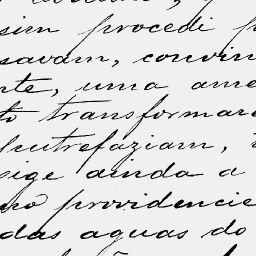 sim procedi p
savam, convin
nte, uma ame
to transformara
lentrefaziam,
sige ainda a
no providencie
das aguas do